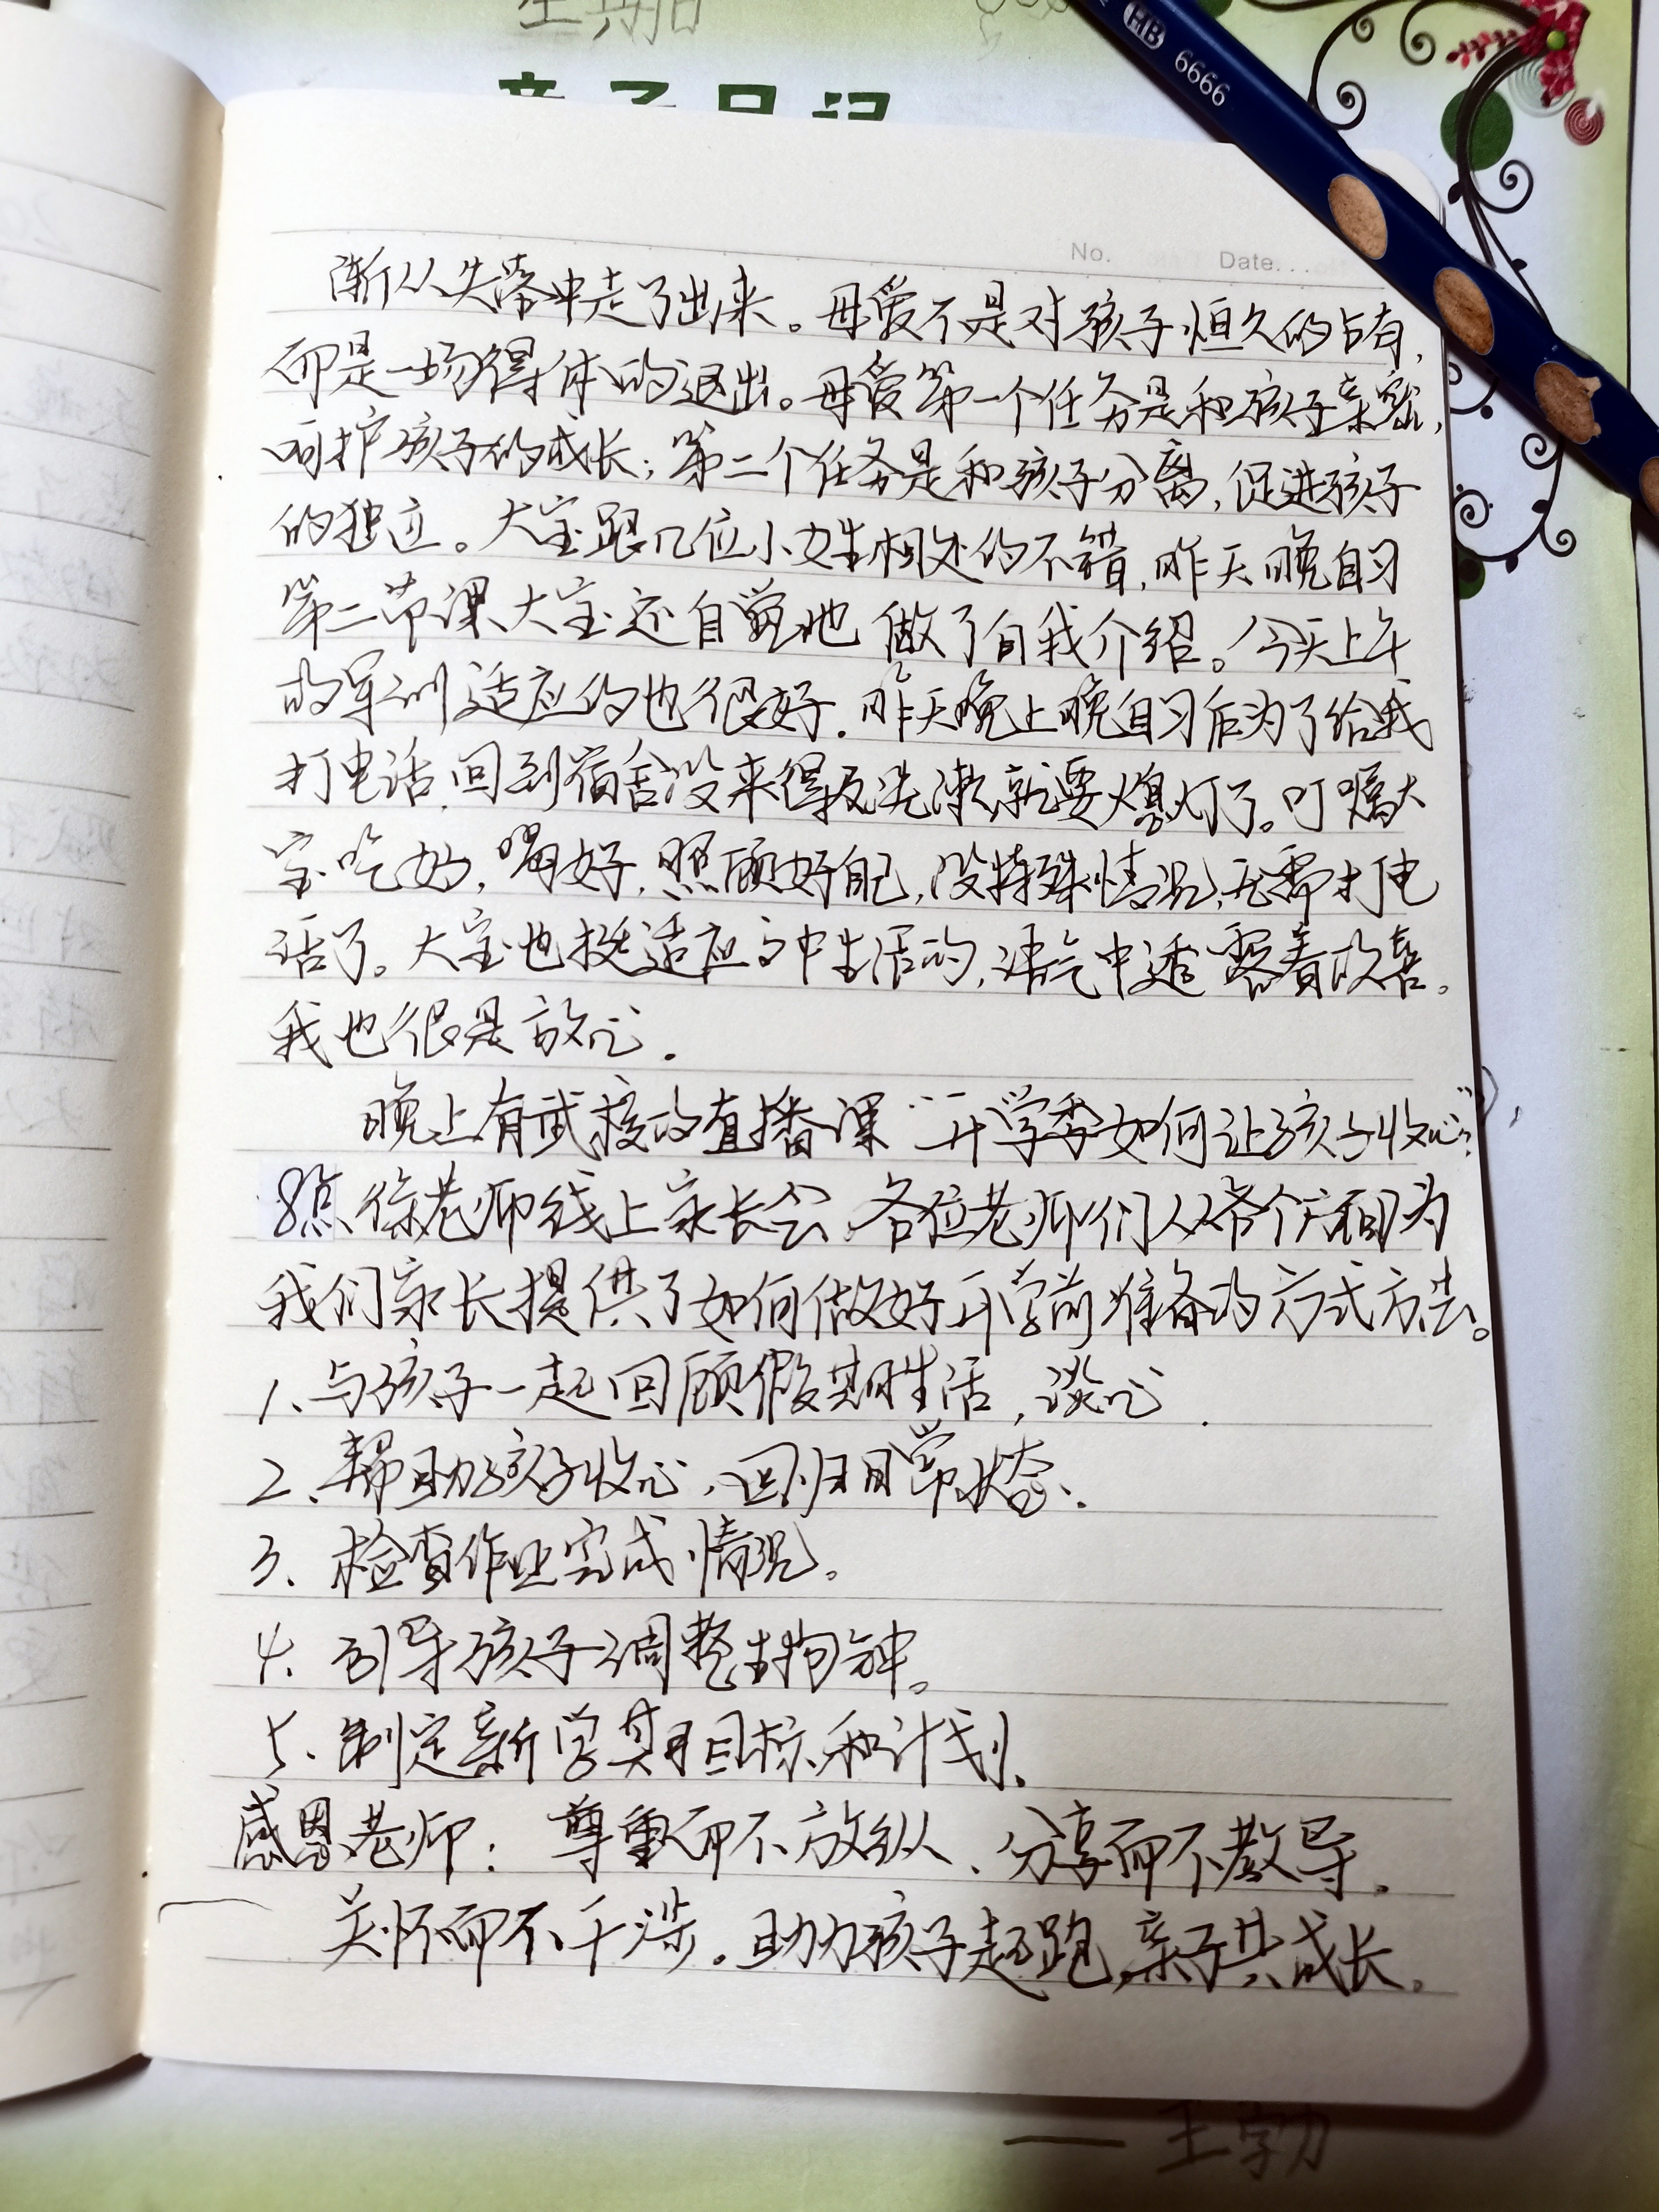 亲子日记
HB 6666
No. Date
渐从失落中走了出来。母爱不是对孩子恒久的占有,
而是一场得体的退出。母爱第一个任务是和孩子亲密,
呵护孩子的成长;第二个任务是和孩子分离,促进孩子
的独立。大宝跟几位小女生相处的不错,昨天晚自习
第二节课大宝还自觉地做了自我介绍。今天上午
的军训适应的也很好.昨天晚上晚自习后为了给我
打电话,回到宿舍没来得及洗漱就要熄灯了。叮嘱大
宝吃好,喝好,照顾好自己,没特殊情况,无需打电
话了。大宝也挺适应初中生活的,语气中透露着欢喜。
我也很是放心.
晚上有武校的直播课“开学季如何让孩子收心”,
8点徐老师线上家长会,各位老师们从各个方面为
我们家长提供了如何做好开学前准备的方式方法。
1、与孩子一起回顾假期生活,谈心.
2、帮助孩子收心,回归日常状态.
3、检查作业完成情况。
4、引导孩子调整生物钟。
5、制定新学期目标和计划.
感恩老师:尊重而不放纵、分享而不教导.
关怀而不干涉。助力孩子起跑,亲子共成长。
——王勃